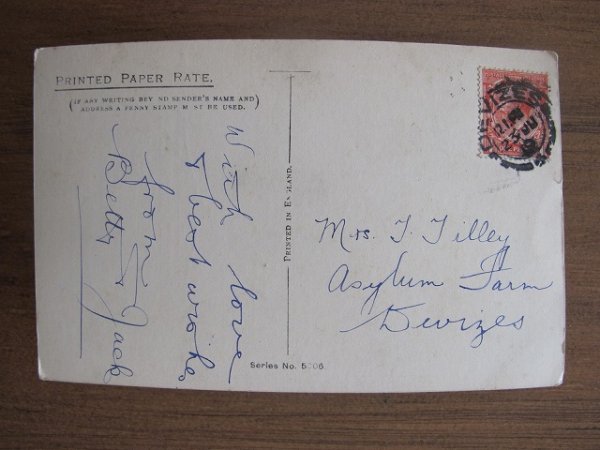 PRINTED PAPER RATE.
(IF ANY WRITING BEY ND SENDER'S NAME AND)
ADDRESS A PENNY STAMP M ST BE USED.
With love
& best wishes
from
Betty & Jack
PRINTED IN ENGLAND.
DEVIZES
Mrs. T. Tilley
Asylum Farm
Devizes
Series No. 5 06